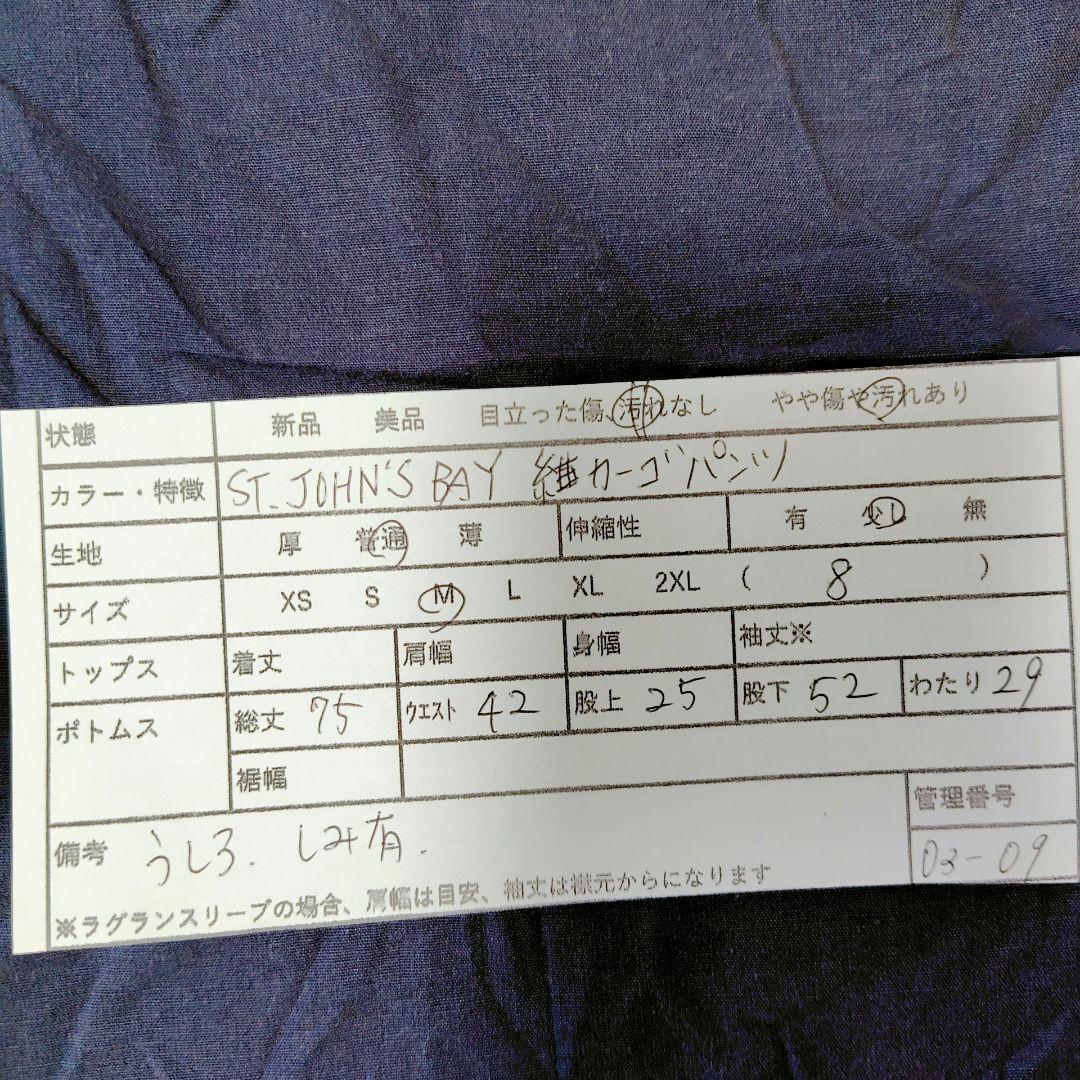 状態 新品 美品 目立った傷、汚れなし やや傷や汚れあり
カラー・特徴 ST. JOHN'S BAY カーゴパンツ
生地 厚 普通 薄 伸縮性 有 少し 無
サイズ XS S M L XL 2XL ( 8 )
トップス 着丈 肩幅 身幅 袖丈※
ボトムス 総丈 75 ウエスト 42 股上 25 股下 52 わたり 29
裾幅
管理番号
備考 うしろ. しみ有.
03-09
※ラグランスリーブの場合、肩幅は目安、袖丈は襟元からになります